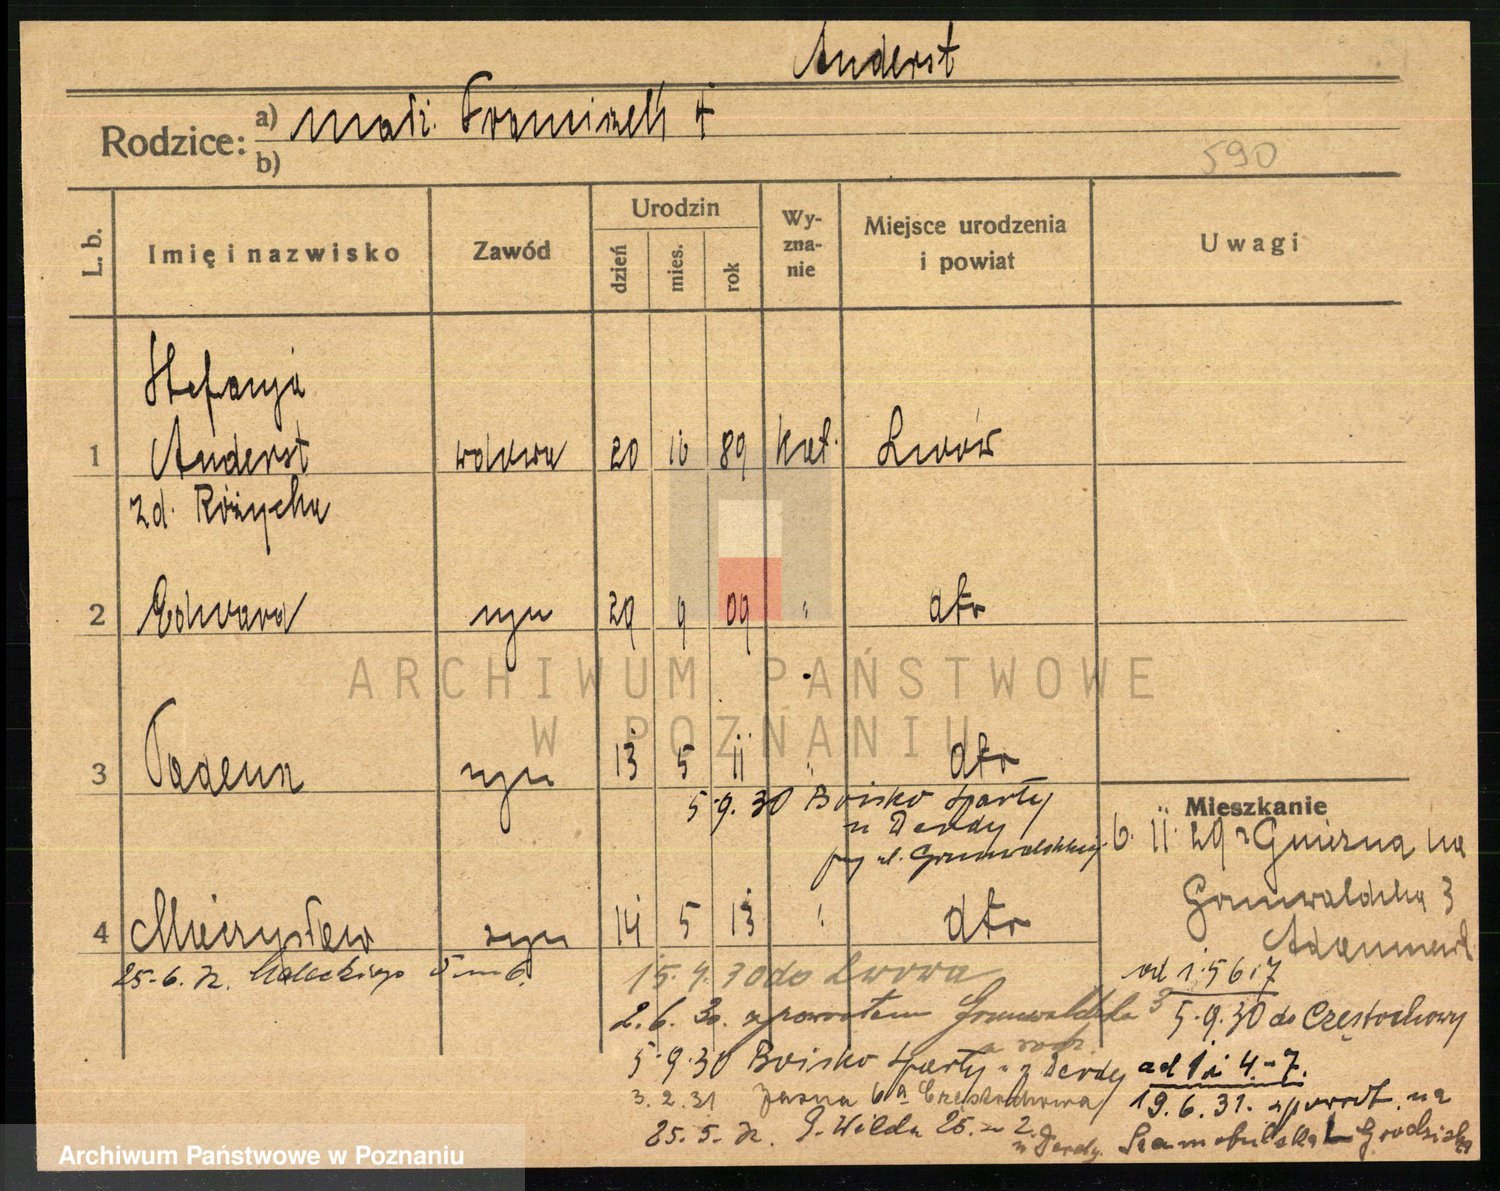 Anderst
Rodzice: a) małż. Franciszek †
b)
590
L. b. Imię i nazwisko Zawód Urodzin dzień mies. rok Wy-zna-nie Miejsce urodzenia i powiat Uwagi
Stefanja
1 Anderst wdowa 20 10 89 kat. Lwów
zd. Różycka
2 Edward syn 29 9 09 " dto
ARCHIWUM PAŃSTWOWE
W POZNANIU
3 Tadeusz syn 13 5 11 " dto
5.9.30 Boisko Sparty
u Derdy
przy ul. Grunwaldzkiej
Mieszkanie
6. 11. 29 z Gniezna na
Grunwaldzka 3
4 Mieczysław syn 14 5 13 " dto
25.6. Małeckiego 5 m 6.
15.4.30 do Lwowa
od 1. 5 6 i 7
2.6.30. z powrotem Grunwaldzka 3
5.9.30 do Częstochowy
5.9.30 Boisko Sparty u Derdy
ad 1 i 4-7.
3.2.31 Jasna 6a Częstochowa
19.6.31. z powrot. na
25.5. G. Wilda 25. m 2.
u Derdy
Szamotulska Grodziska
Archiwum Państwowe w Poznaniu